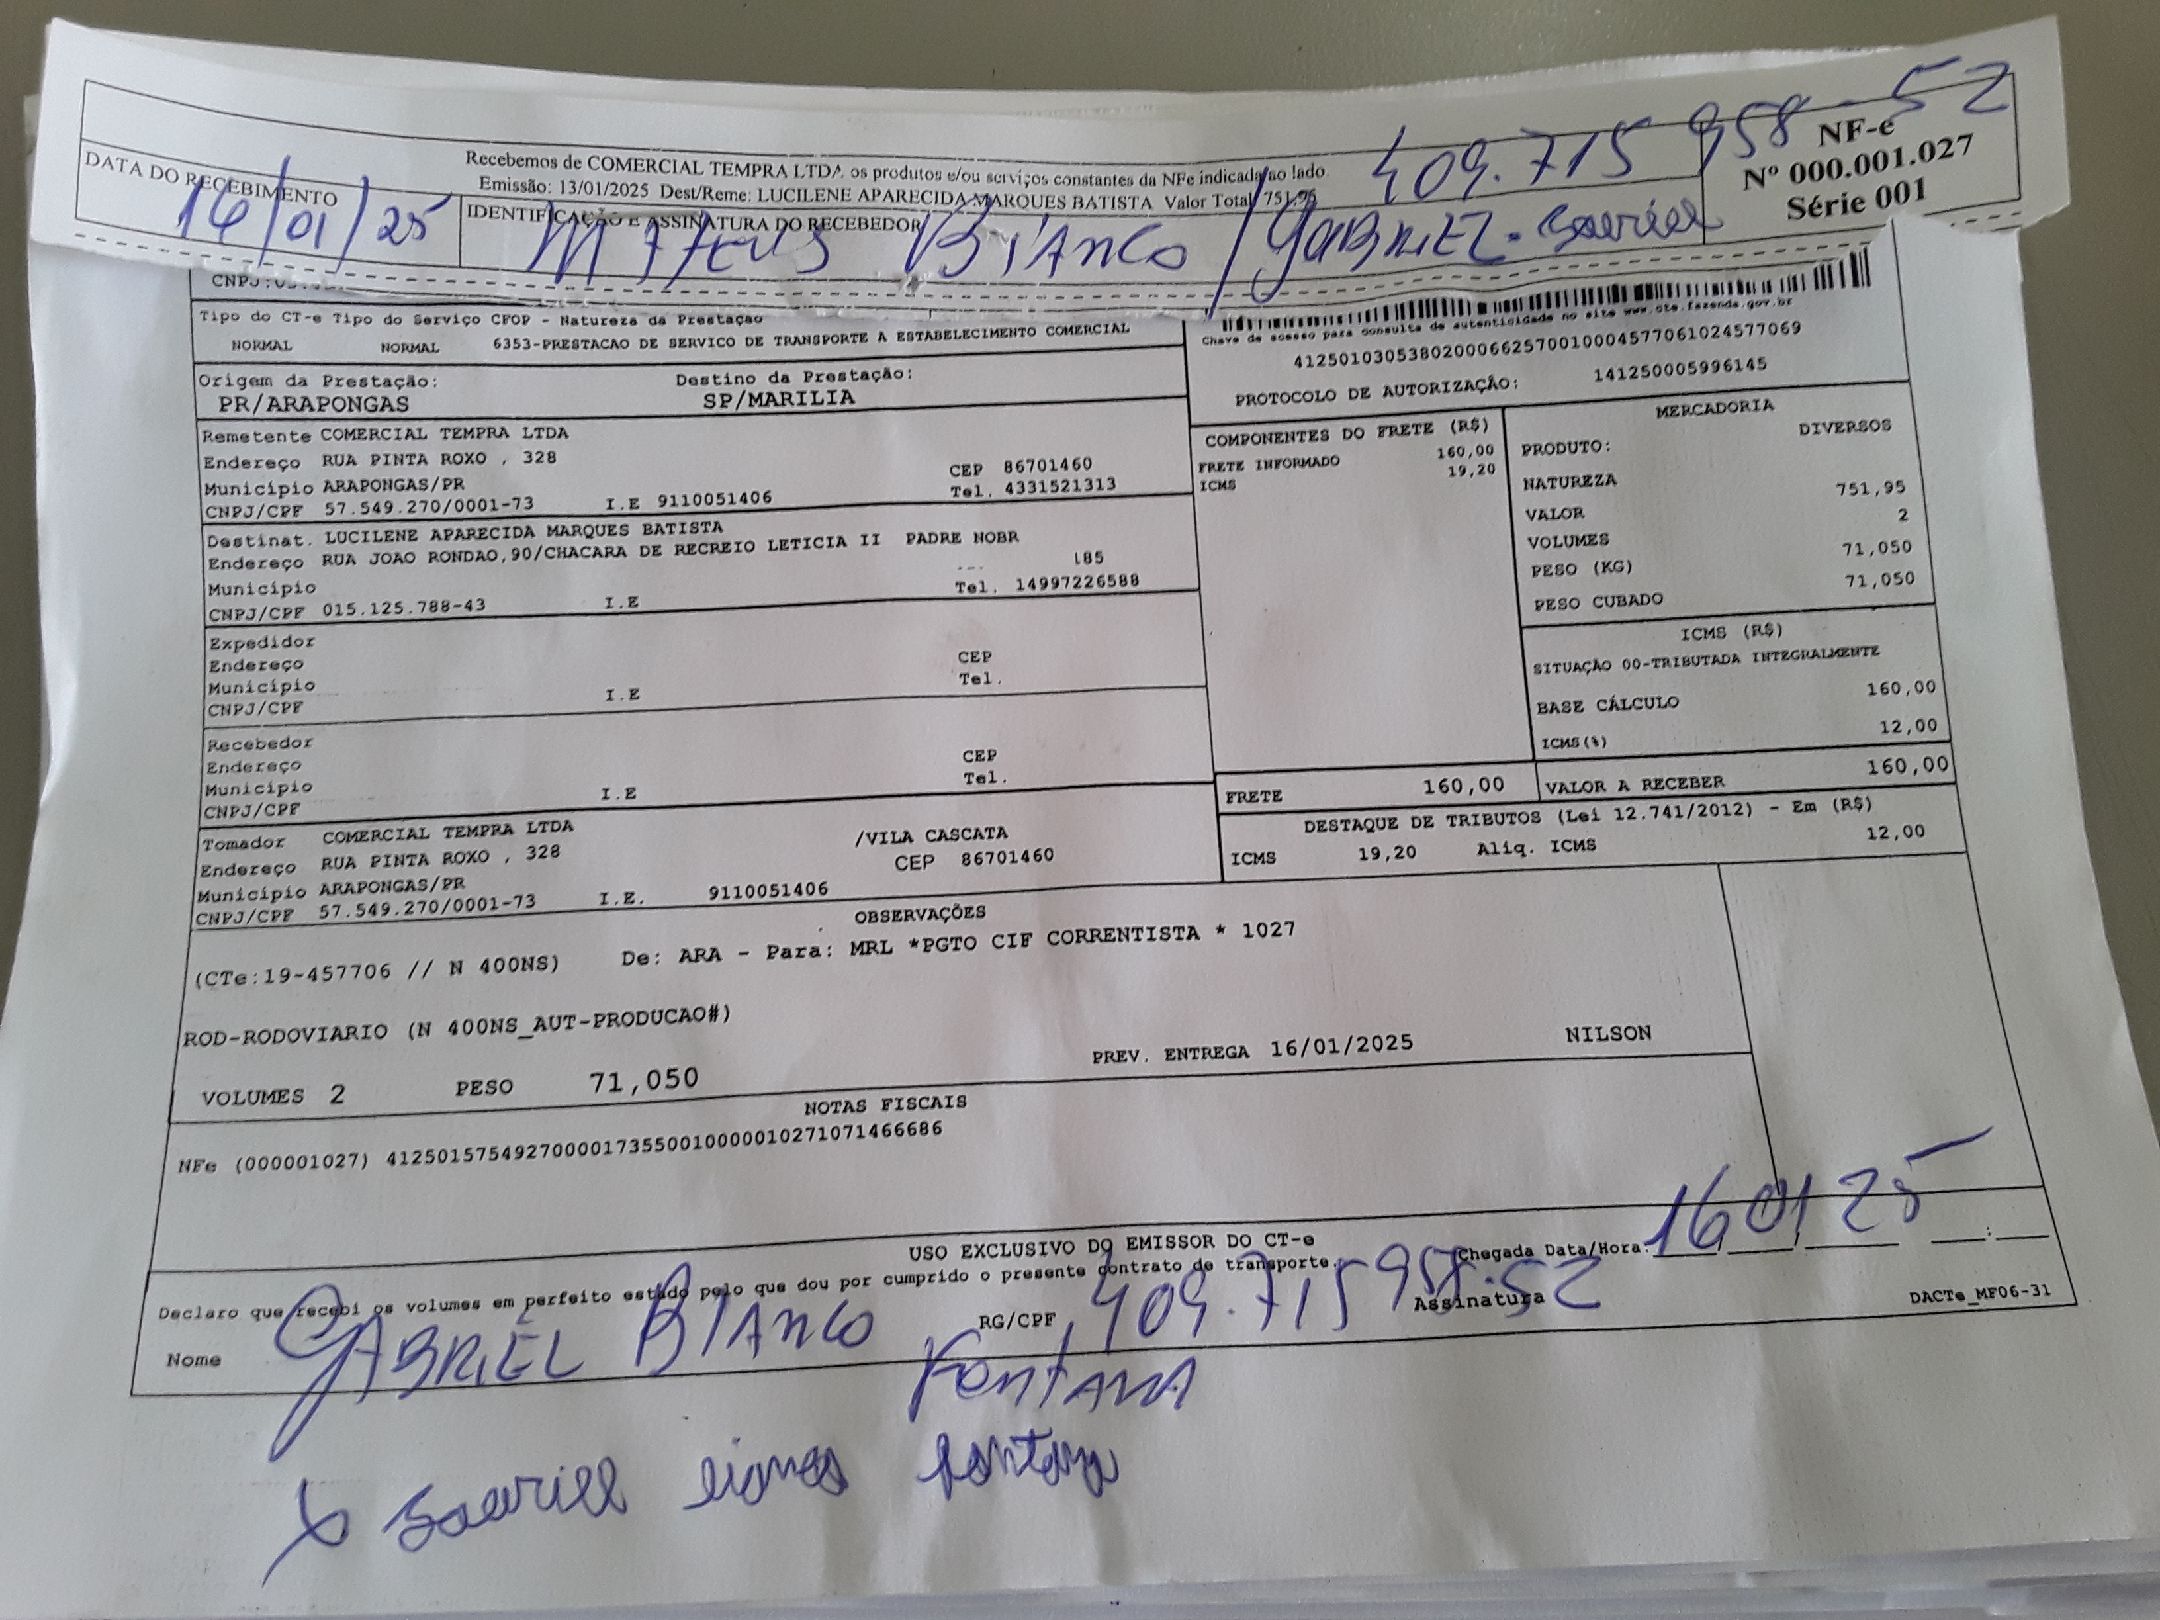 409.715 958-52
NF-e
Nº 000.001.027
Série 001
Recebemos de COMERCIAL TEMPRA LTDA os produtos e/ou serviços constantes da NFe indicada ao lado.
Emissão: 13/01/2025 Dest/Reme: LUCILENE APARECIDA MARQUES BATISTA Valor Total 751,95
DATA DO RECEBIMENTO
16/01/25
IDENTIFICAÇÃO E ASSINATURA DO RECEBEDOR
Mateus Bianco / GABRIEL.
Tipo do CT-e Tipo do Serviço CFOP - Natureza da Prestação
NORMAL NORMAL 6353-PRESTACAO DE SERVICO DE TRANSPORTE A ESTABELECIMENTO COMERCIAL
Chave de acesso para consulta de autenticidade no site www.cte.fazenda.gov.br
41250103053802000662570010004577061024577069
PROTOCOLO DE AUTORIZAÇÃO: 141250005996145
Origem da Prestação: Destino da Prestação:
PR/ARAPONGAS SP/MARILIA
Remetente COMERCIAL TEMPRA LTDA
Endereço RUA PINTA ROXO , 328 CEP 86701460
Município ARAPONGAS/PR Tel. 4331521313
CNPJ/CPF 57.549.270/0001-73 I.E 9110051406
Destinat. LUCILENE APARECIDA MARQUES BATISTA
Endereço RUA JOAO RONDAO,90/CHACARA DE RECREIO LETICIA II PADRE NOBR
Município 185
Tel. 14997226588
CNPJ/CPF 015.125.788-43 I.E
Expedidor
Endereço CEP
Município Tel.
CNPJ/CPF I.E
Recebedor
Endereço CEP
Município Tel.
CNPJ/CPF I.E
Tomador COMERCIAL TEMPRA LTDA /VILA CASCATA
Endereço RUA PINTA ROXO , 328 CEP 86701460
Município ARAPONGAS/PR
CNPJ/CPF 57.549.270/0001-73 I.E. 9110051406
COMPONENTES DO FRETE (R$)
FRETE INFORMADO 160,00
ICMS 19,20
MERCADORIA
PRODUTO: DIVERSOS
NATUREZA
VALOR 751,95
VOLUMES 2
PESO (KG) 71,050
PESO CUBADO 71,050
ICMS (R$)
SITUAÇÃO 00-TRIBUTADA INTEGRALMENTE
BASE CÁLCULO 160,00
ICMS(%) 12,00
FRETE 160,00 VALOR A RECEBER 160,00
DESTAQUE DE TRIBUTOS (Lei 12.741/2012) - Em (R$)
ICMS 19,20 Aliq. ICMS 12,00
OBSERVAÇÕES
(CTe:19-457706 // N 400NS) De: ARA - Para: MRL *PGTO CIF CORRENTISTA * 1027
ROD-RODOVIARIO (N 400NS_AUT-PRODUCAO#)
PREV. ENTREGA 16/01/2025 NILSON
VOLUMES 2 PESO 71,050
NOTAS FISCAIS
NFe (000001027) 41250157549270000173550010000010271071466686
USO EXCLUSIVO DO EMISSOR DO CT-e
Declaro que recebi os volumes em perfeito estado pelo que dou por cumprido o presente contrato de transporte.
Chegada Data/Hora: 16 01 25
Nome GABRIEL BIANCO RG/CPF 409.715958-52 Assinatura
DACTe_MF06-31
Fontana